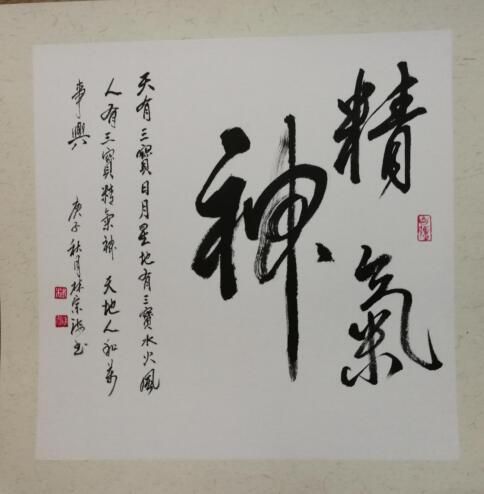 精氣
神
天有三寶日月星地有三寶水火風
人有三寶精氣神 天地人和萬
事興 庚子秋月林宗海书